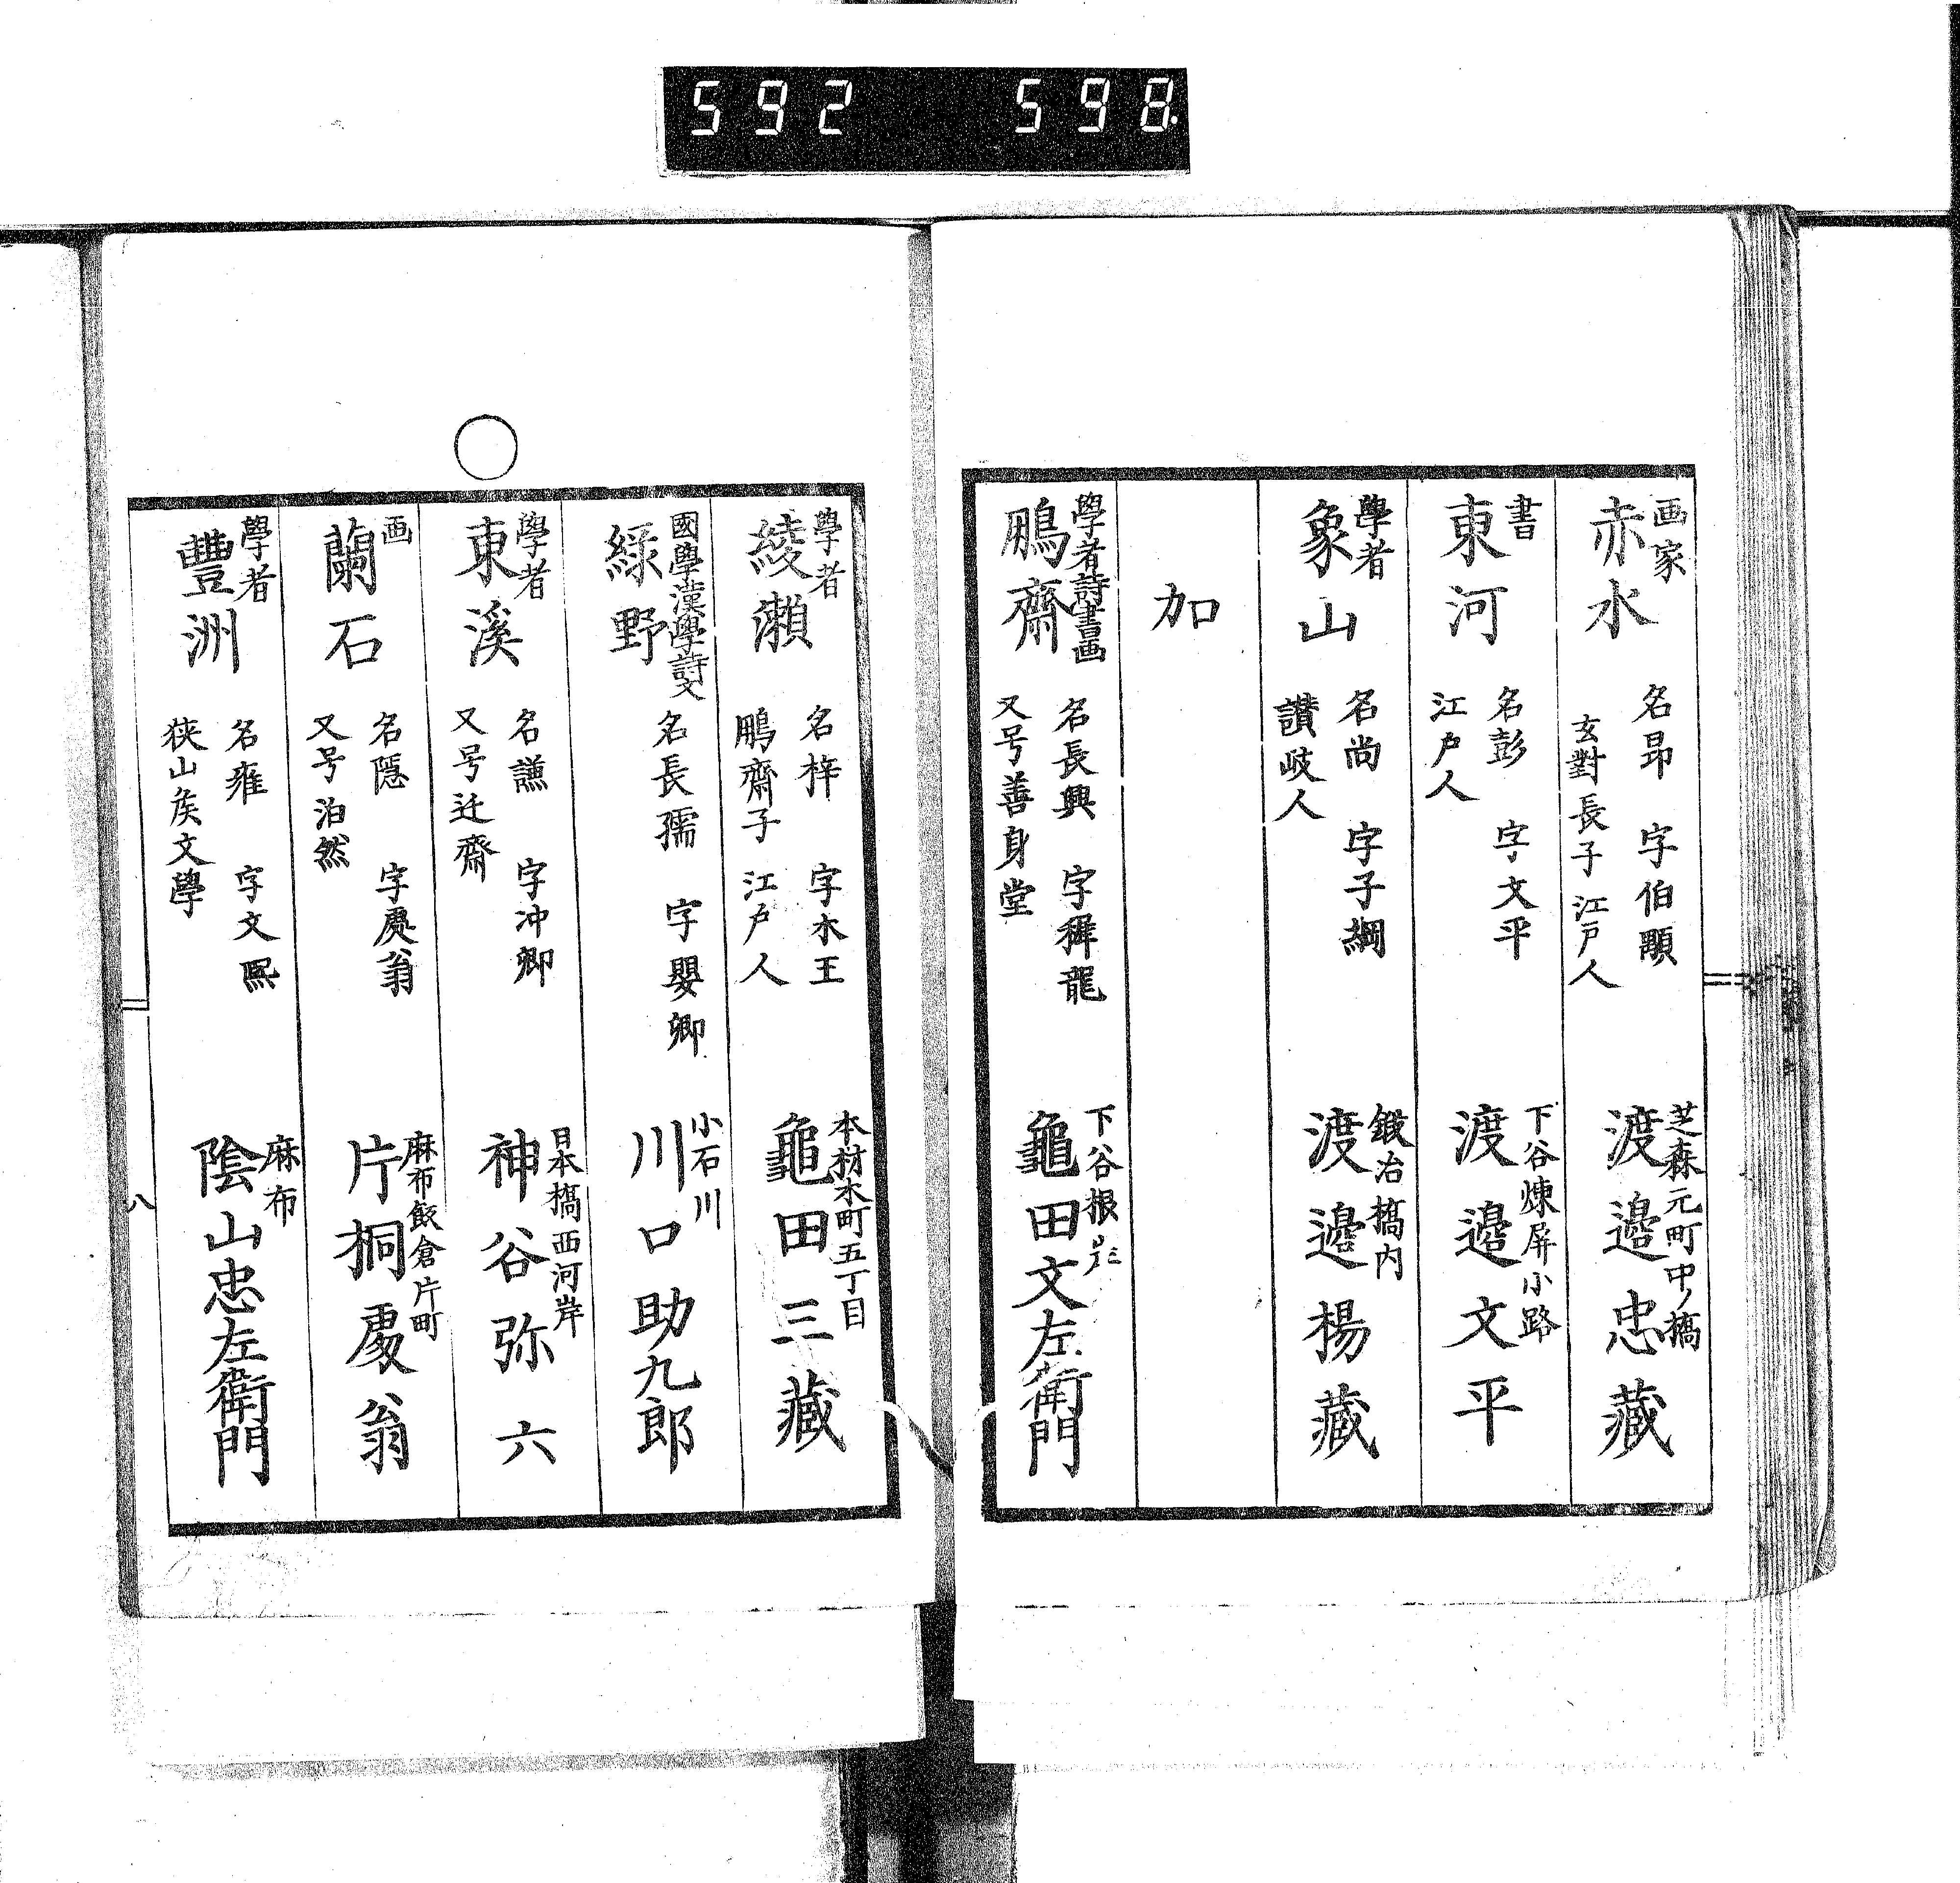 592 598.
画家
赤水
名昂 字伯顯
玄對長子 江戸人
芝森元町中ノ橋
渡邉忠藏
書
東河
名彭 字文平
江戸人
下谷煉屏小路
渡邉文平
學者
象山
名尚 字子綱
讃岐人
鍛冶橋内
渡邉楊藏
加
學者詩書画
鵬齋
名長興 字穉龍
又号善身堂
下谷根岸
龜田文左衛門
學者
綾瀬
名梓 字木王
鵬齋子 江戸人
本材木町五丁目
龜田三藏
國學漢學詩文
緑野
名長孺 字嬰卿
小石川
川口助九郎
學者
東溪
名謙 字冲卿
又号迂齋
日本橋西河岸
神谷弥六
画
蘭石
名隠 字處翁
又号泊然
麻布飯倉片町
片桐處翁
學者
豐洲
名雍 字文熈
狭山矦文學
麻布
陰山忠左衛門
八